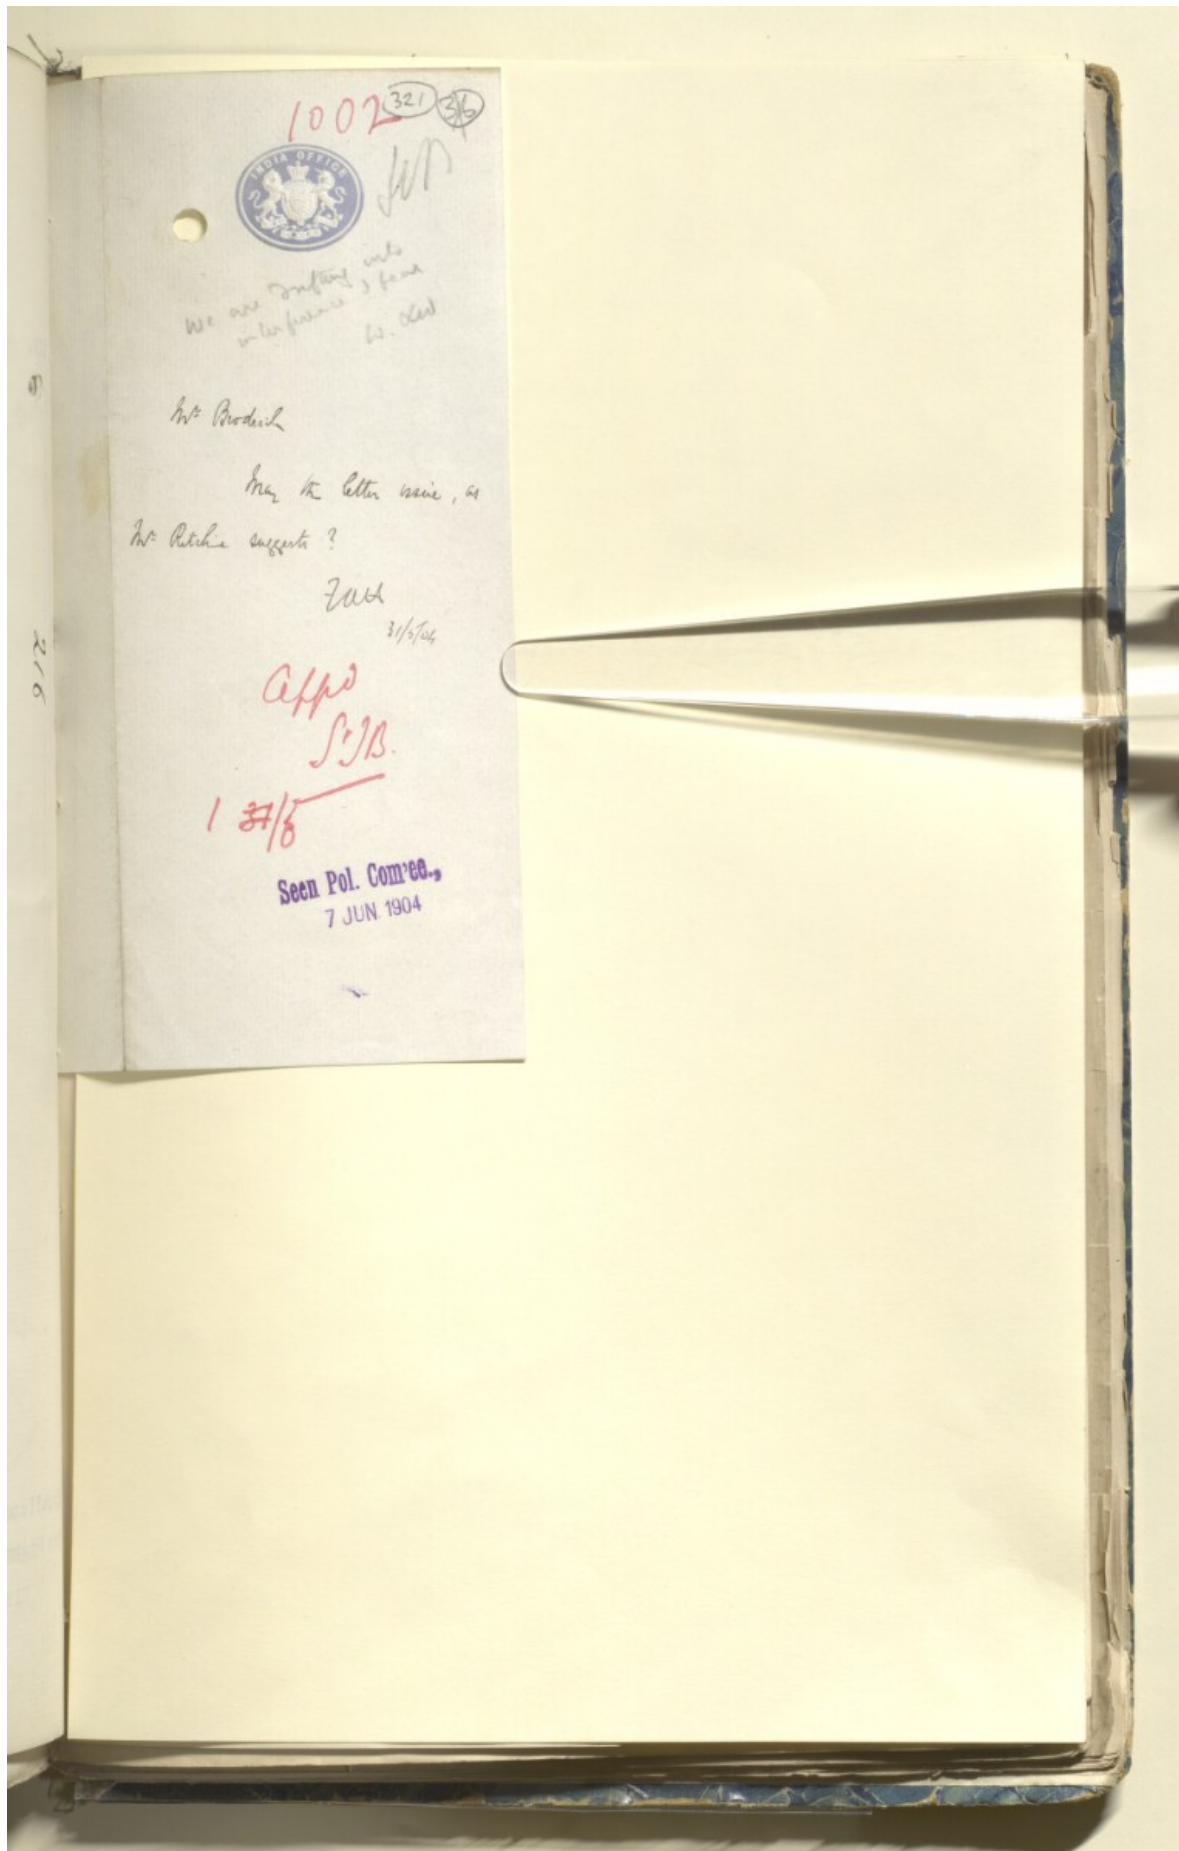 1002
321
316
INDIA OFFICE
We are drifting into
interference, I fear
Mr Brodrick
May the letter issue, as
Mr Ritchie suggests?
31/5/04
Appd
StJB.
Seen Pol. Com'ee.,
7 JUN. 1904
216